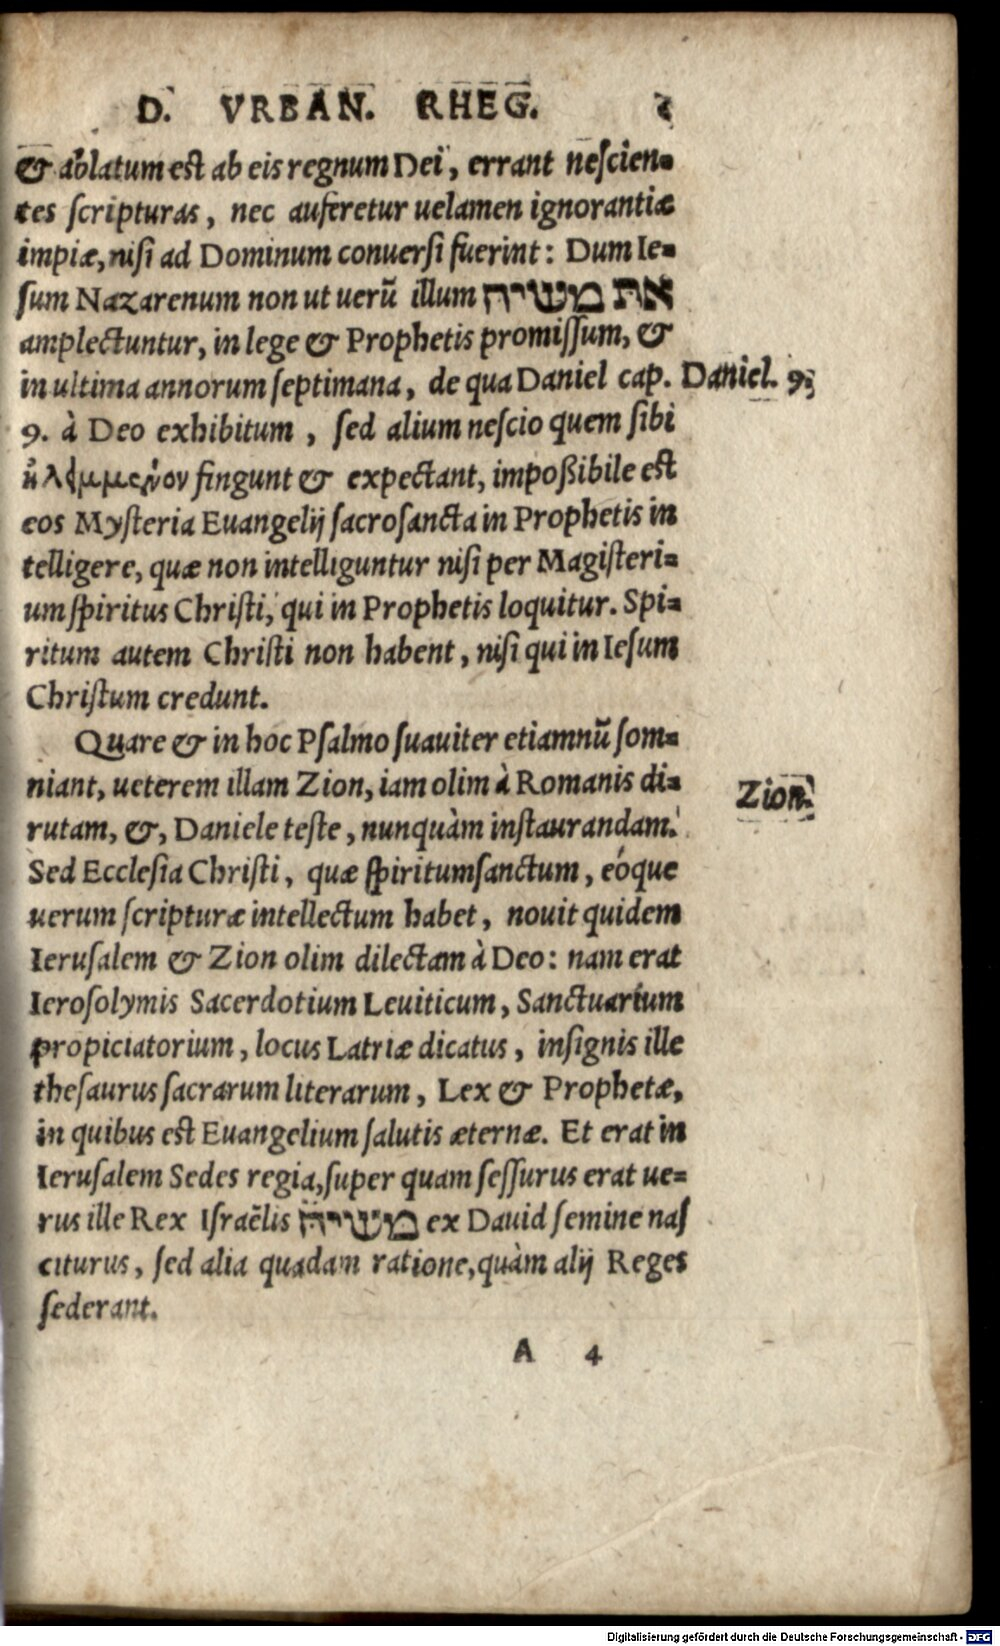 D. VRBAN. RHEG.
& ablatum est ab eis regnum Dei, errant nescien=
tes scripturas, nec auferetur uelamen ignorantiæ
impiæ, nisi ad Dominum conuersi fuerint: Dum Ie=
sum Nazarenum non ut uerũ illum את משיח
amplectuntur, in lege & Prophetis promissum, &
in ultima annorum septimana, de qua Daniel cap.
Daniel. 9.
9. à Deo exhibitum, sed alium nescio quem sibi
fingunt & expectant, impoßibile est
eos Mysteria Euangelij sacrosancta in Prophetis in
telligere, quæ non intelliguntur nisi per Magisteri=
um spiritus Christi, qui in Prophetis loquitur. Spi=
ritum autem Christi non habent, nisi qui in Iesum
Christum credunt.
Quare & in hoc Psalmo suauiter etiamnũ som=
niant, ueterem illam Zion, iam olim à Romanis di=
Zion.
rutam, &, Daniele teste, nunquàm instaurandam.
Sed Ecclesia Christi, quæ spiritumsanctum, eóque
uerum scripturæ intellectum habet, nouit quidem
Ierusalem & Zion olim dilectam à Deo: nam erat
Ierosolymis Sacerdotium Leuiticum, Sanctuarium
propiciatorium, locus Latriæ dicatus, insignis ille
thesaurus sacrarum literarum, Lex & Prophetæ,
in quibus est Euangelium salutis æternæ. Et erat in
Ierusalem Sedes regia, super quam sessurus erat ue=
rus ille Rex Israëlis משיח ex Dauid semine nas
citurus, sed alia quadam ratione, quàm alij Reges
sederant.
A 4
Digitalisierung gefördert durch die Deutsche Forschungsgemeinschaft - DFG